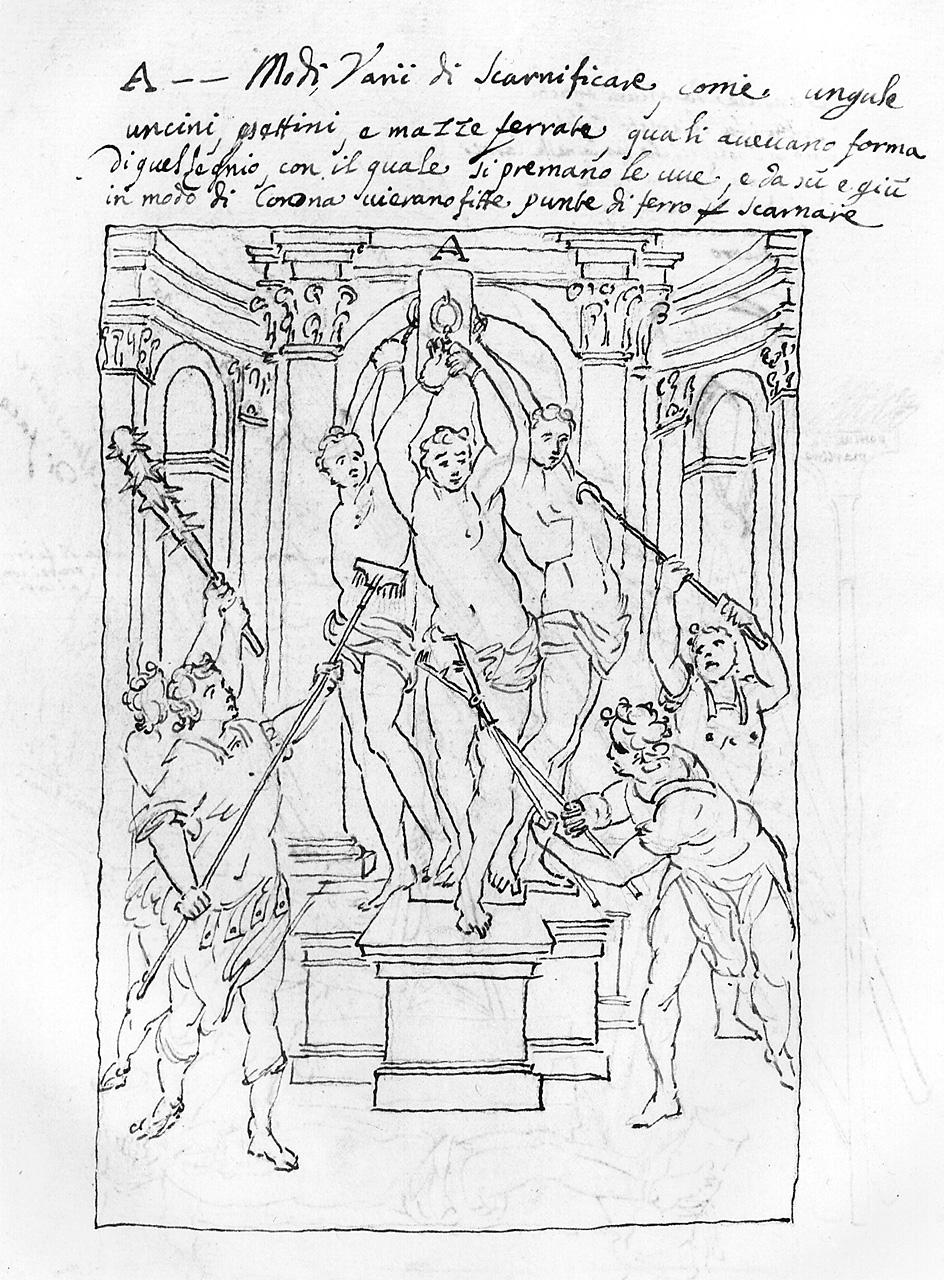 A -- Modi Varii di Scarnificare, come, ungule
uncini, pettini, e mazze ferrate, quali aueuano forma
di quel legnio, con il quale si premano le uue, e da sù e giù
in modo di Corona vierano fitte punte di ferro p scarnare
A